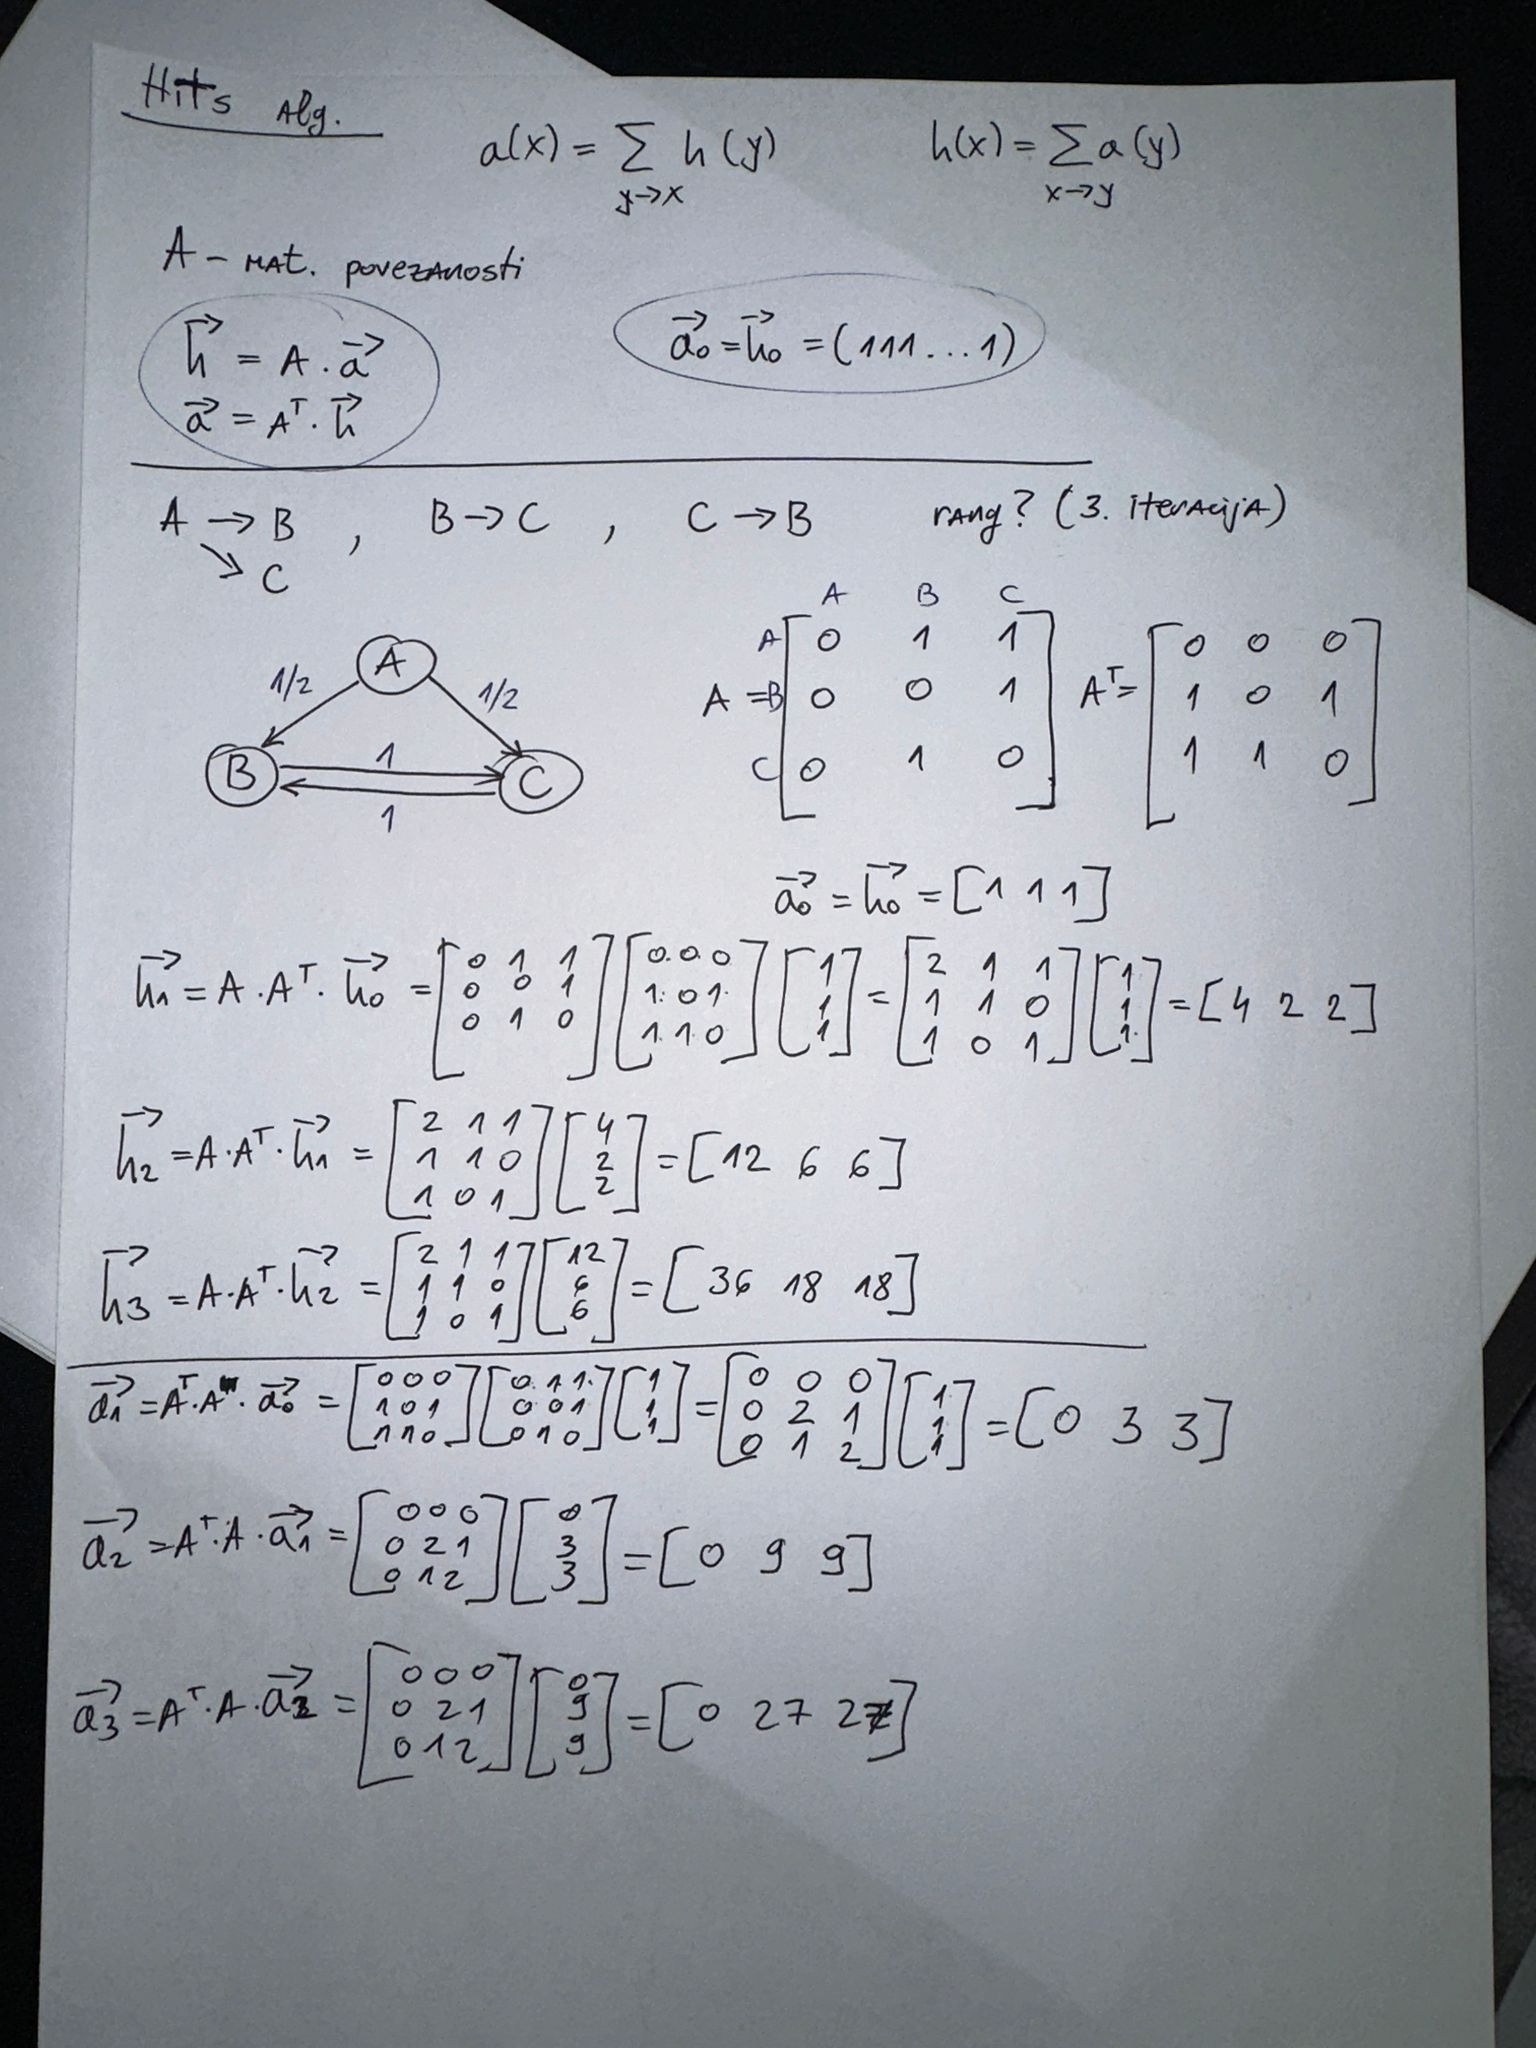 Hits Alg.
a(x) = ∑ h(y) h(x) = ∑ a(y)
y→x x→y
A - mat. povezanosti
h⃗ = A · a⃗
a⃗ = Aᵀ · h⃗
a⃗₀ = h⃗₀ = (111...1)
A → B , B → C , C → B rang? (3. iteracija)
↘ C
A
1/2 1/2
B 1 C
1
A B C
A 0 1 1
A = B 0 0 1
C 0 1 0
Aᵀ = [0 0 0
1 0 1
1 1 0]
a⃗₀ = h⃗₀ = [1 1 1]
h⃗₁ = A · Aᵀ · h⃗₀ = [0 1 1; 0 0 1; 0 1 0] [0 0 0; 1 0 1; 1 1 0] [1; 1; 1] = [2 1 1; 1 1 0; 1 0 1] [1; 1; 1] = [4 2 2]
h⃗₂ = A · Aᵀ · h⃗₁ = [2 1 1; 1 1 0; 1 0 1] [4; 2; 2] = [12 6 6]
h⃗₃ = A · Aᵀ · h⃗₂ = [2 1 1; 1 1 0; 1 0 1] [12; 6; 6] = [36 18 18]
a⃗₁ = Aᵀ · A · a⃗₀ = [0 0 0; 1 0 1; 1 1 0] [0 1 1; 0 0 1; 0 1 0] [1; 1; 1] = [0 0 0; 0 2 1; 0 1 2] [1; 1; 1] = [0 3 3]
a⃗₂ = Aᵀ · A · a⃗₁ = [0 0 0; 0 2 1; 0 1 2] [0; 3; 3] = [0 9 9]
a⃗₃ = Aᵀ · A · a⃗₂ = [0 0 0; 0 2 1; 0 1 2] [0; 9; 9] = [0 27 27]